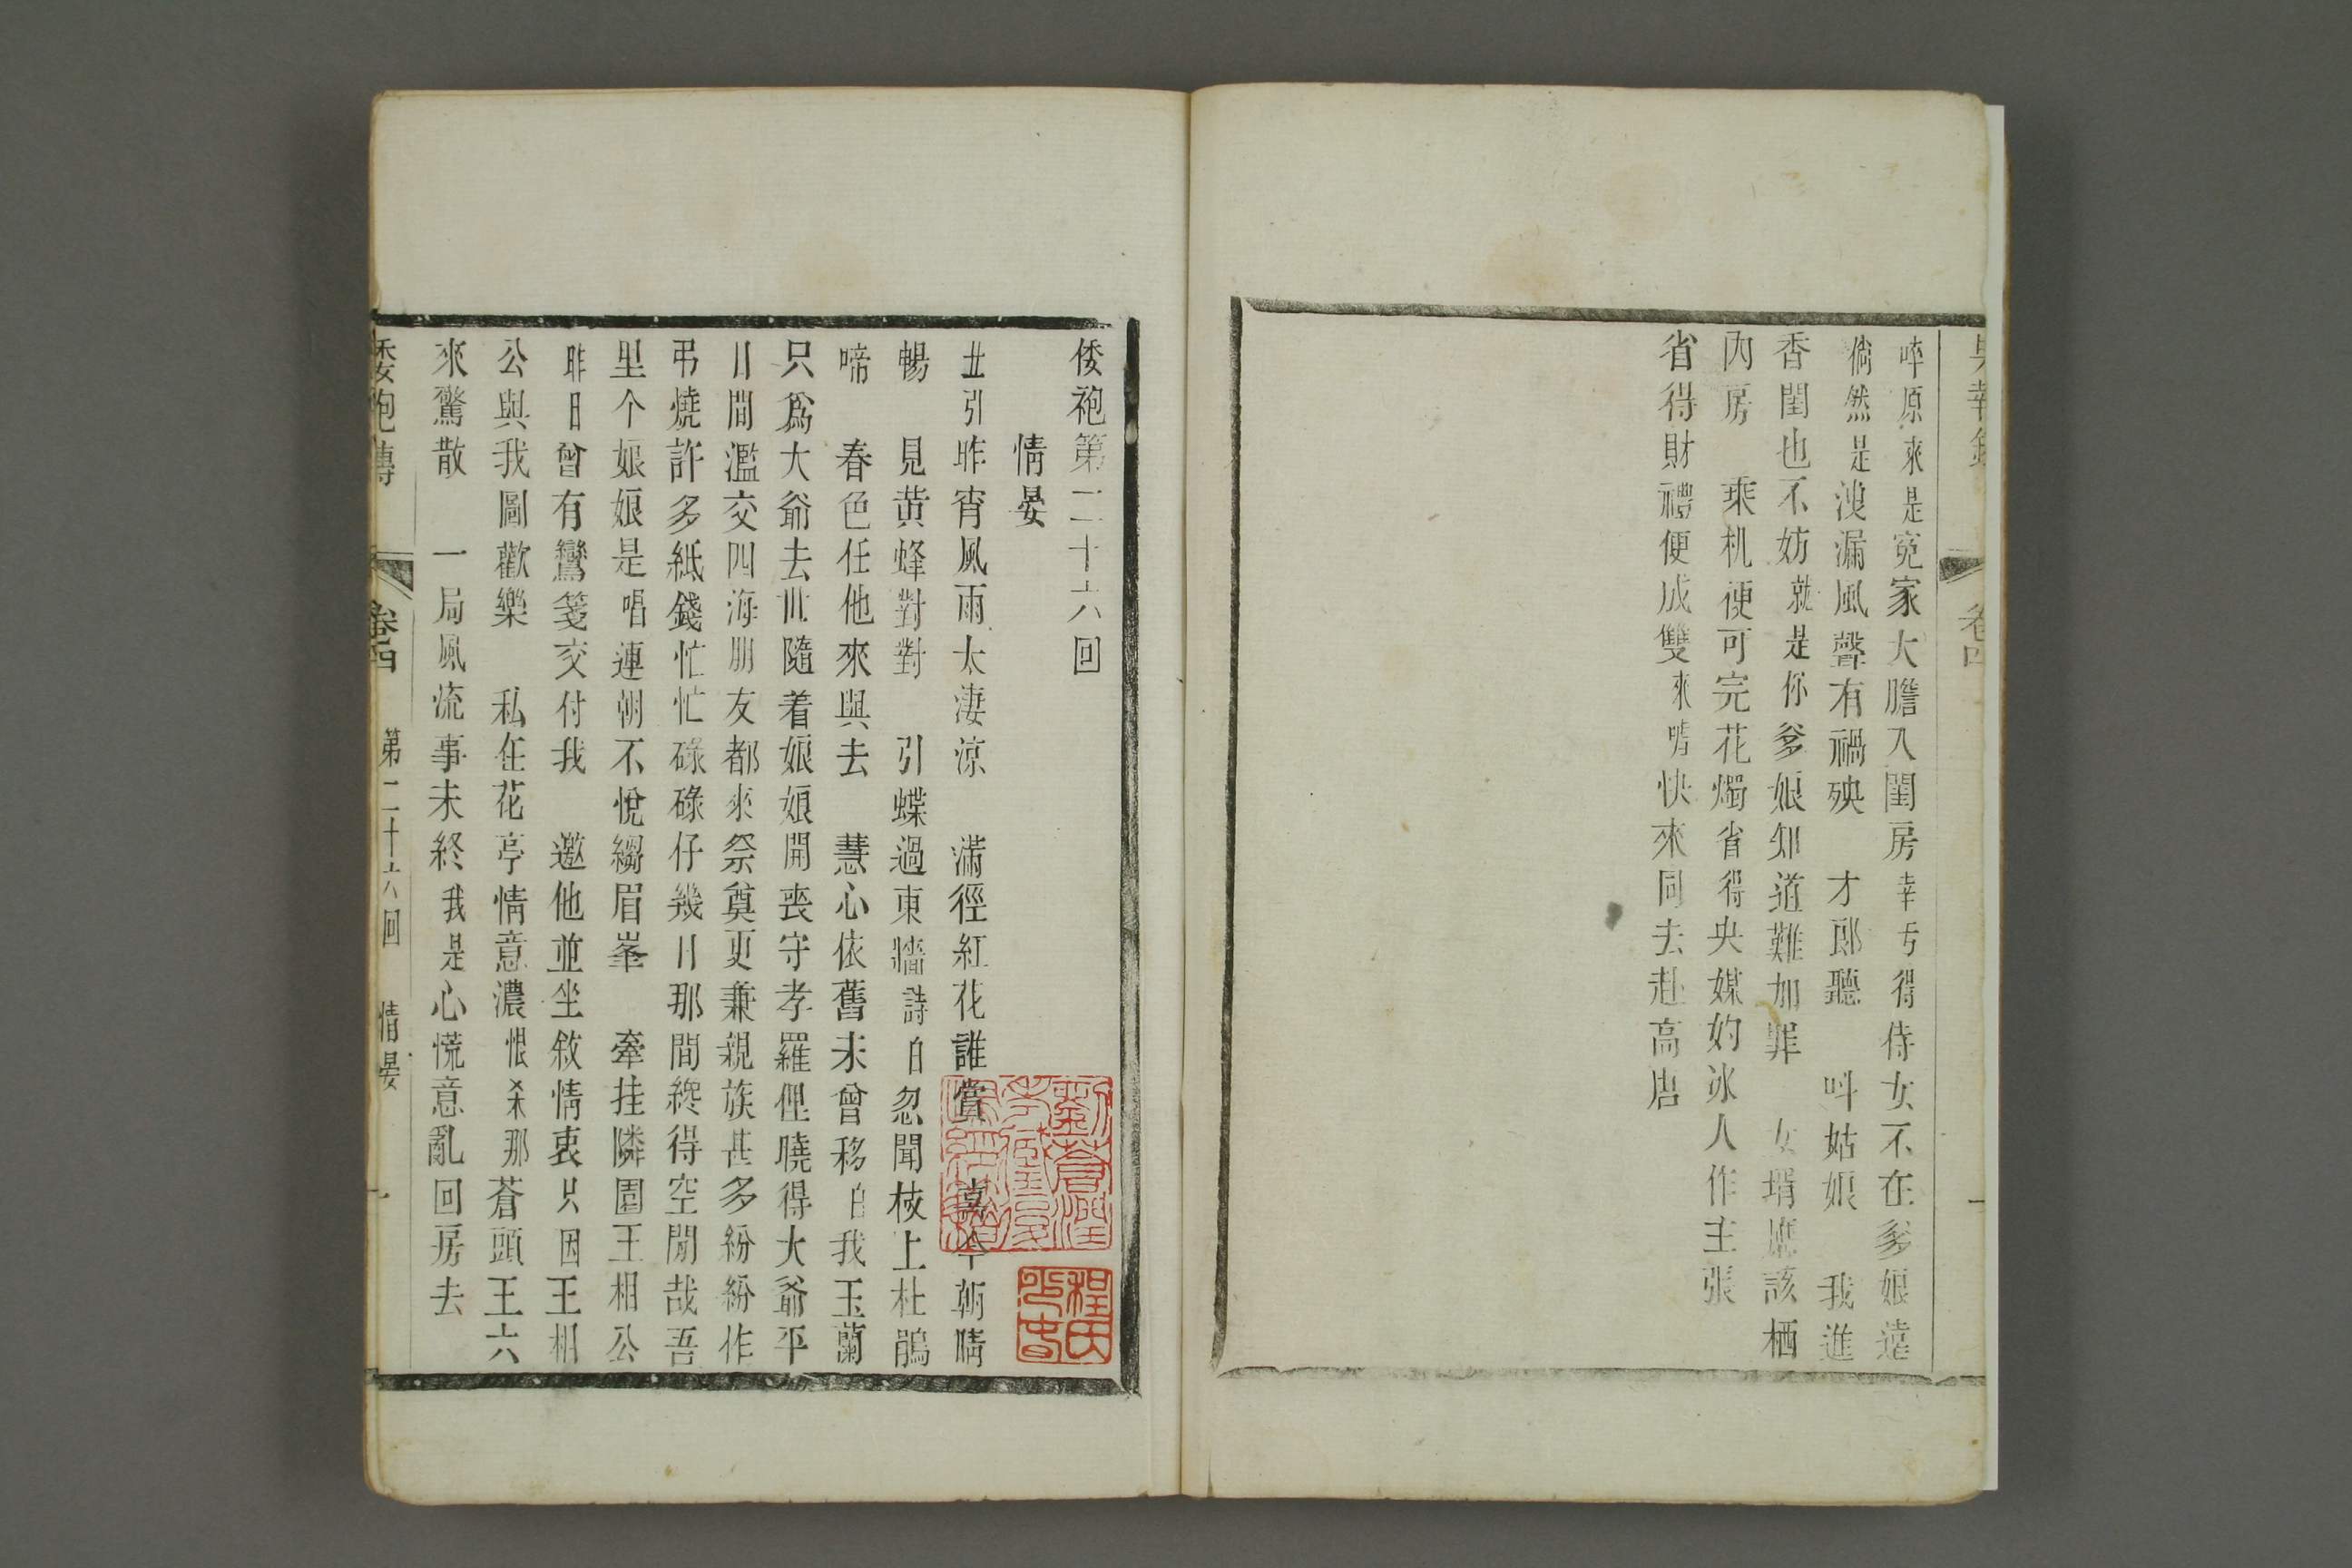 卷四
啐原來是寃家大膽入閨房幸亏得侍女不在爹娘遠
倘然是洩漏風聲有禍殃　才郎聽　呌姑娘　我進
香閨也不妨就是你爹娘知道難加罪　女壻應該栖
內房　乘机便可完花燭省得央媒妁冰人作主張
省得財禮便成雙來啨快來同去赴高唐
倭袍第二十六回
情晏
丑引昨宵風雨太淒涼　滿徑紅花誰賞　喜今朝晴
暢　見黄蜂對對　引蝶過東牆詩白忽聞枝上杜鵑
啼　春色任他來與去　慧心依舊未曾移白我玉蘭
只爲大爺去世隨着娘娘開喪守孝羅俚曉得大爺平
日間濫交四海朋友都來祭奠更兼親族甚多紛紛作
弔燒許多紙錢忙忙碌碌仔幾日那間纔得空閒哉吾
里个娘娘是唱連朝不悅縐眉峯　牽挂隣園王相公
昨日曾有鸞箋交付我　邀他並坐敘情衷只因王相
公與我圖歡樂　私在花亭情意濃恨杀那蒼頭王六
來驚散　一局風流事未終我是心慌意亂回房去
倭袍傳　卷四　第二十六回　情晏　一
程氏